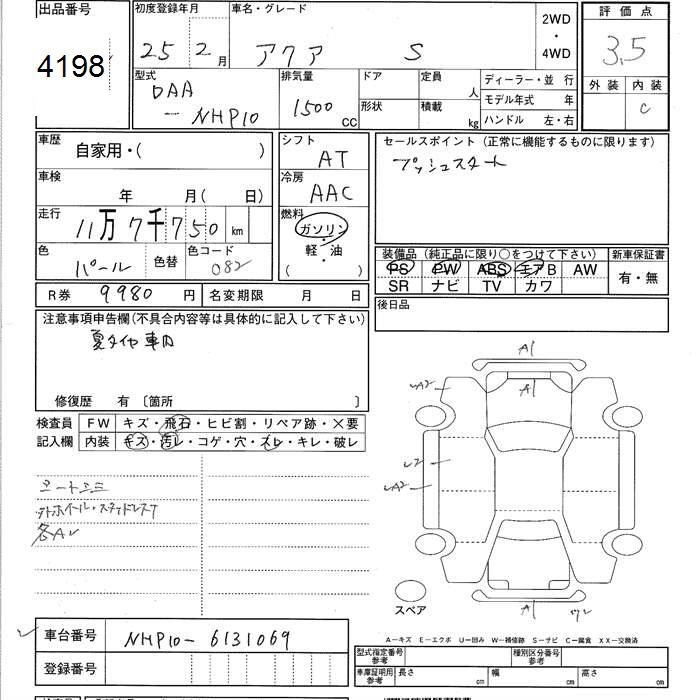 出品番号 初度登録年月 車名・グレード 2WD・4WD 評価点
4198 25 2月 アクア S 3.5
型式 排気量 ドア 定員 人 ディーラー・並 行 外装 内装
DAA-NHP10 1500 CC 形状 積載 kg モデル年式 年 C
ハンドル 左・右
車歴 自家用・( ) シフト AT セールスポイント (正常に機能するものに限ります)
車検 年 月( 日) 冷房 AAC プッシュスタート
走行 11万7千750km 燃料 ガソリン・軽・油 ( )
色 パール 色替 色コード 082 装備品 (純正品に限り○をつけて下さい) 新車保証書
PS PW ABS エアB AW 有・無
SR ナビ TV カワ
R券 9980円 名変期限 月 日 後日品
注意事項申告欄(不具合内容等は具体的に記入して下さい)
夏タイヤ車内
修復歴 有 〔箇所 〕
検査員 FW キズ・飛石・ヒビ割・リペア跡・×要
記入欄 内装 キズ・汚レ・コゲ・穴・スレ・キレ・破レ
A1
A1
A2
A2
A1
スペア
A-キズ E-エクボ U-凹み W-補修跡 S-サビ C-腐食 XX-交換済
車台番号 NHP10-6131069 型式指定番号 参考 種別区分番号 参考
登録番号 車庫証明用 参考 長さ cm 幅 cm 高さ cm